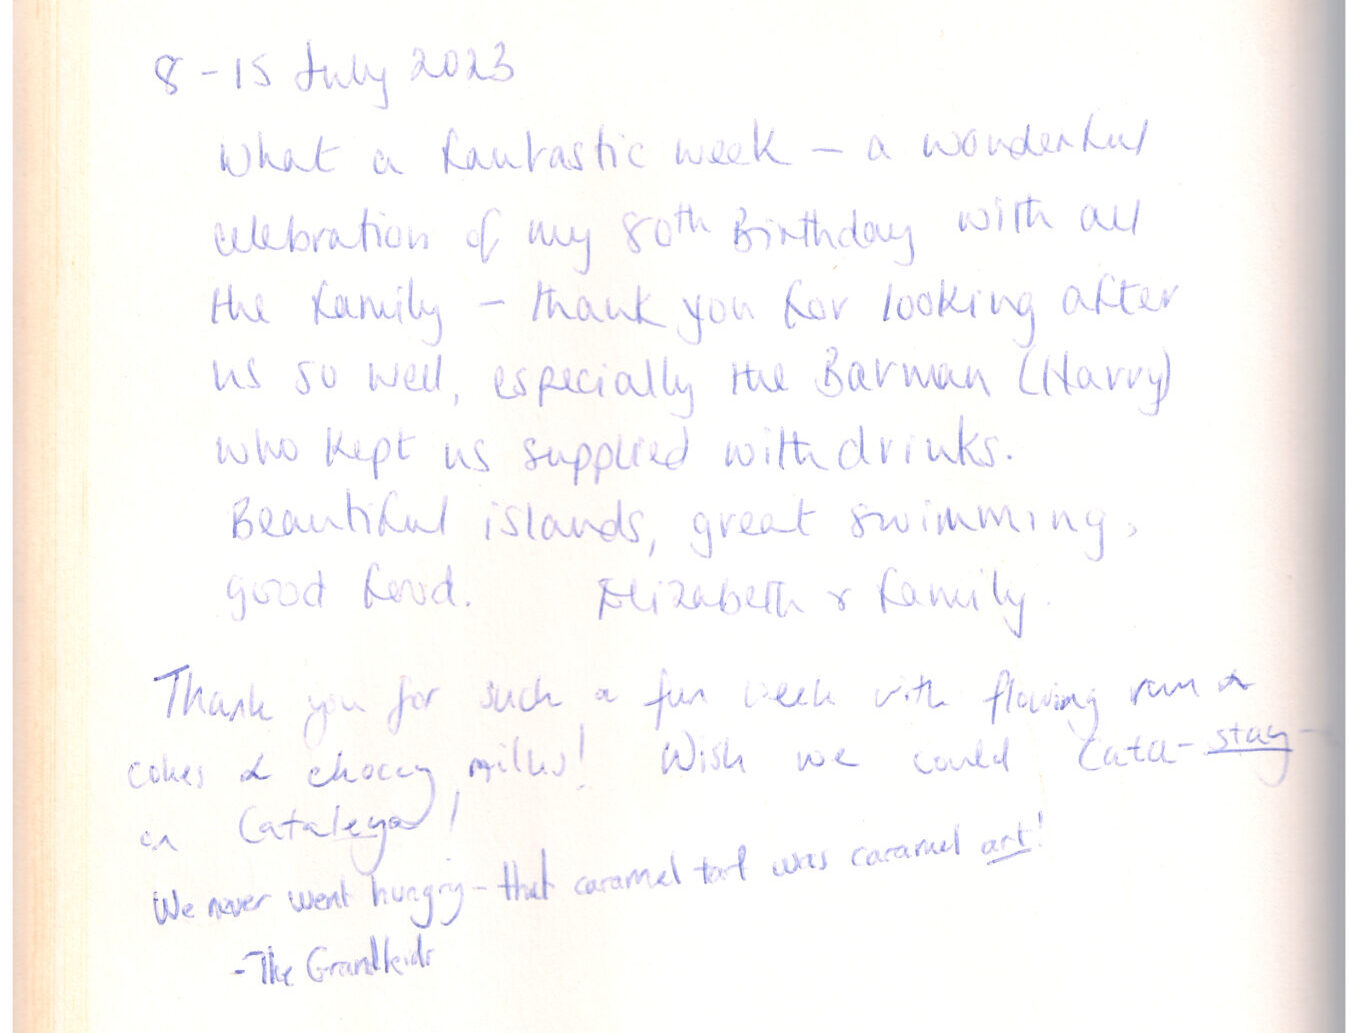 8 - 15 July 2023
What a fantastic week – a wonderful
celebration of my 80th Birthday with all
the family – thank you for looking after
us so well, especially the Barman (Harry)
who kept us supplied with drinks.
Beautiful islands, great swimming,
good food. Elizabeth & family.
Thank you for such a fun week with flowing rum &
cokes & choccy milks! Wish we could Cata-stay-
on Cataleya!
We never went hungry - that caramel tart was caramel art!
- The Grandkids